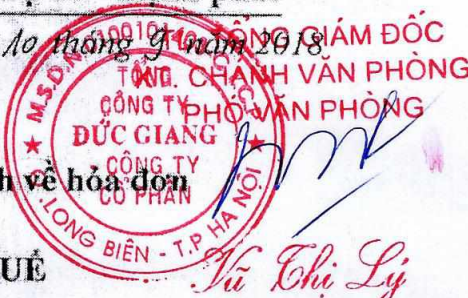 10 tháng 9 năm 2018
TỔNG GIÁM ĐỐC
KT. CHÁNH VĂN PHÒNG
PHÓ VĂN PHÒNG
TỔNG
CÔNG TY
ĐỨC GIANG
CÔNG TY
CỔ PHẦN
Q. LONG BIÊN - T.P HÀ NỘI
về hóa đơn
Vũ Thị Lý